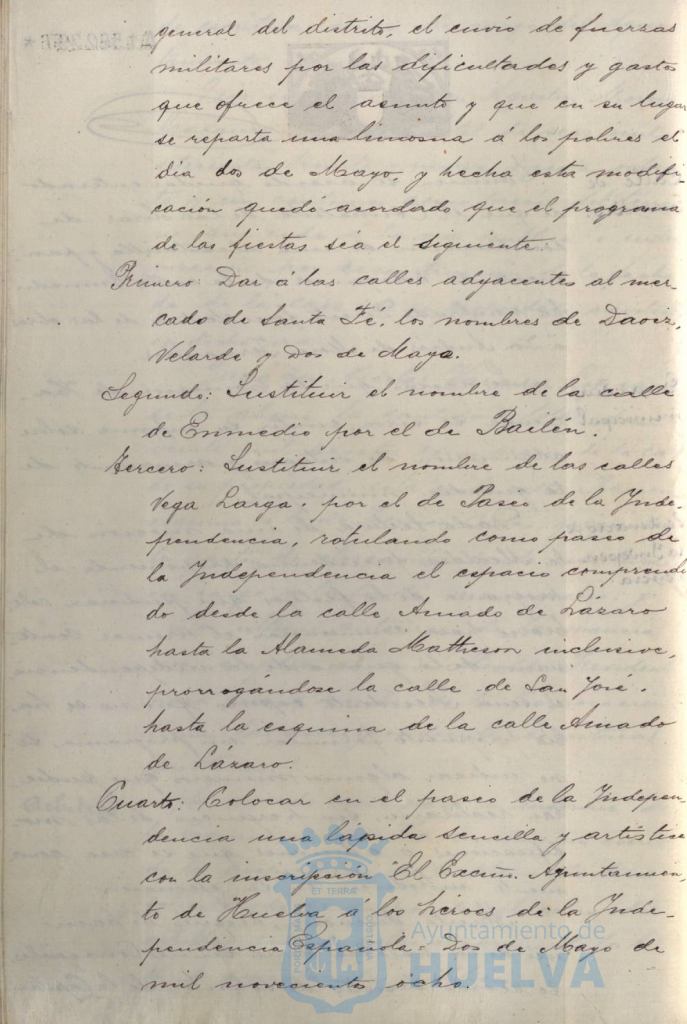 general del distrito, el envío de fuerzas
militares por las dificultades y gastos
que ofrece el asunto y que en su lugar
se reparta una limosna á los pobres el
día dos de Mayo, y hecha esta modifi-
cación quedó acordado que el programa
de las fiestas sea el siguiente:
Primero: Dar á las calles adyacentes al mer-
cado de Santa Fé, los nombres de Daoiz,
Velarde y Dos de Mayo.
Segundo: Sustituir el nombre de la calle
de Enmedio por el de Bailén.
Tercero: Sustituir el nombre de las calles
Vega Larga, por el de Paseo de la Inde-
pendencia, rotulando como paseo de
la Independencia el espacio comprendi
do desde la calle Amado de Lázaro
hasta la Alameda Matheson inclusive,
prorrogándose la calle de San José,
hasta la esquina de la calle Amado
de Lázaro.
Cuarto: Colocar en el paseo de la Indepen-
dencia una lápida sencilla y artística
con la inscripción "El Excmo. Ayuntamien-
to de Huelva á los héroes de la Inde-
pendencia Española = Dos de Mayo de
mil novecientos ocho.
Ayuntamiento de
HUELVA